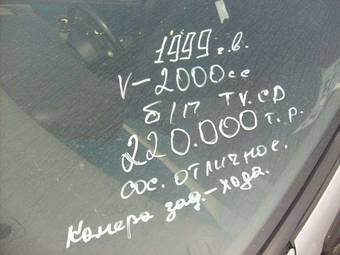 1999 г.в.
V-2000сс
б/п TV.CD
220.000 т.р.
сос. отличное.
Камера зад.-хода.